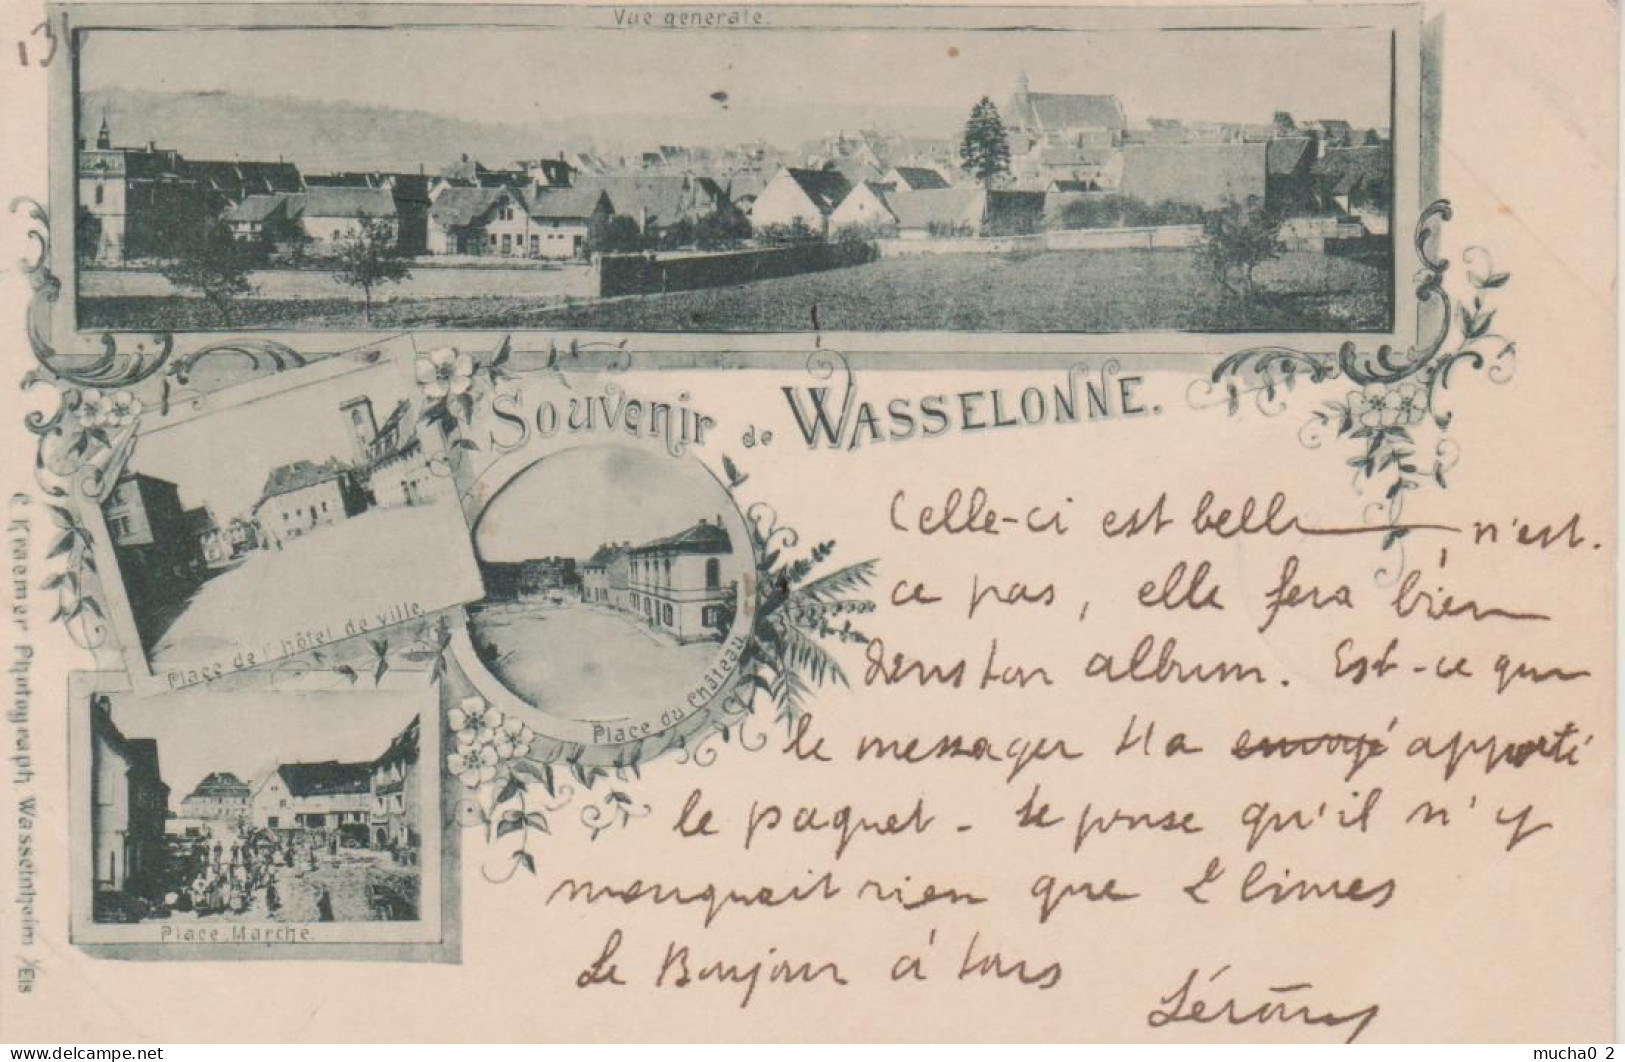 13
Vue generale.
Souvenir de WASSELONNE.
Place de l'hôtel de ville.
Place du Château
Place Marché.
C Kraemer Photograph Wasselnheim i/Els
Celle-ci est belle n'est.
ce pas, elle fera bien
dans ton album. Est-ce que
le messager t'a envoyé apporté
le paquet - Je pense qu'il n'y
manquait rien que 2 limes
Le Bonjour à tous
Jérôme
mucha0_2